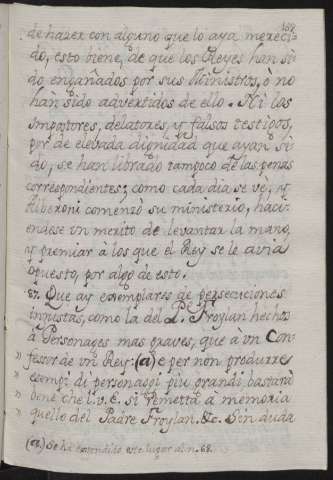 de hazer con alguno que lo aya mereci-
do, esto biene, de que los Reyes han si-
do engañados por sus Ministros, è no
han sido advertidos de ello. Ni los
impostores, delatores, y falsos testigos,
por de elevada dignidad que ayan si-
do, se han librado tampoco de las penas
correspondientes; como cada dia se vè, y
Alberoni comenzó su ministerio, haci-
endose un merito de levantar la mano,
y premiar à los que el Rey se le avia
opuesto, por algo de esto.
87. Que ay exemplares de persecuciones
injustas, como la del P. Froylan hechos
à Personages mas graves, que à un Con-
» fessor de un Rey: (a) e per non produrre
» esempi di personaggi più grandi bastarà
» bene che l. v. e. si remetta à memoria
» quello del Padre Froylan. &c. Sin duda
(a.) Se ha entendido este lugar al n. 68.